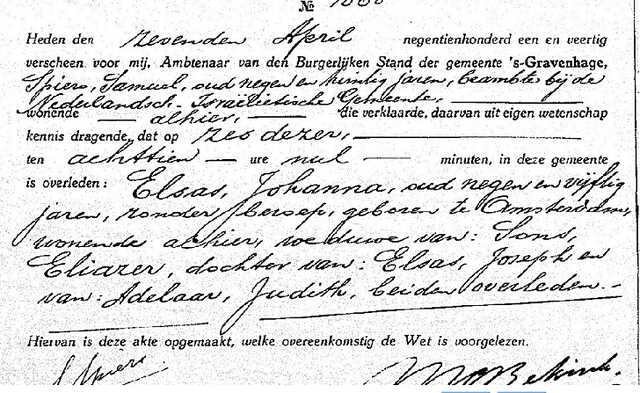 №
Heden den zevenden April negentienhonderd een en veertig
verscheen voor mij, Ambtenaar van den Burgerlijken Stand der gemeente 's-Gravenhage,
Spiero, Samuel, oud negen en twintig jaren, beambte bij de
Nederlandsch-Israelietische Gemeente,
wonende alhier, die verklaarde, daarvan uit eigen wetenschap
kennis dragende, dat op zes dezer,
ten achttien ure nul minuten, in deze gemeente
is overleden: Elsas, Johanna, oud negen en vijftig
jaren, zonder beroep, geboren te Amsterdam,
wonende alhier, weduwe van: Sons,
Eliazer, dochter van: Elsas, Joseph en
van: Adelaar, Judith, beiden overleden.-
Hiervan is deze akte opgemaakt, welke overeenkomstig de Wet is voorgelezen.
S Spiero